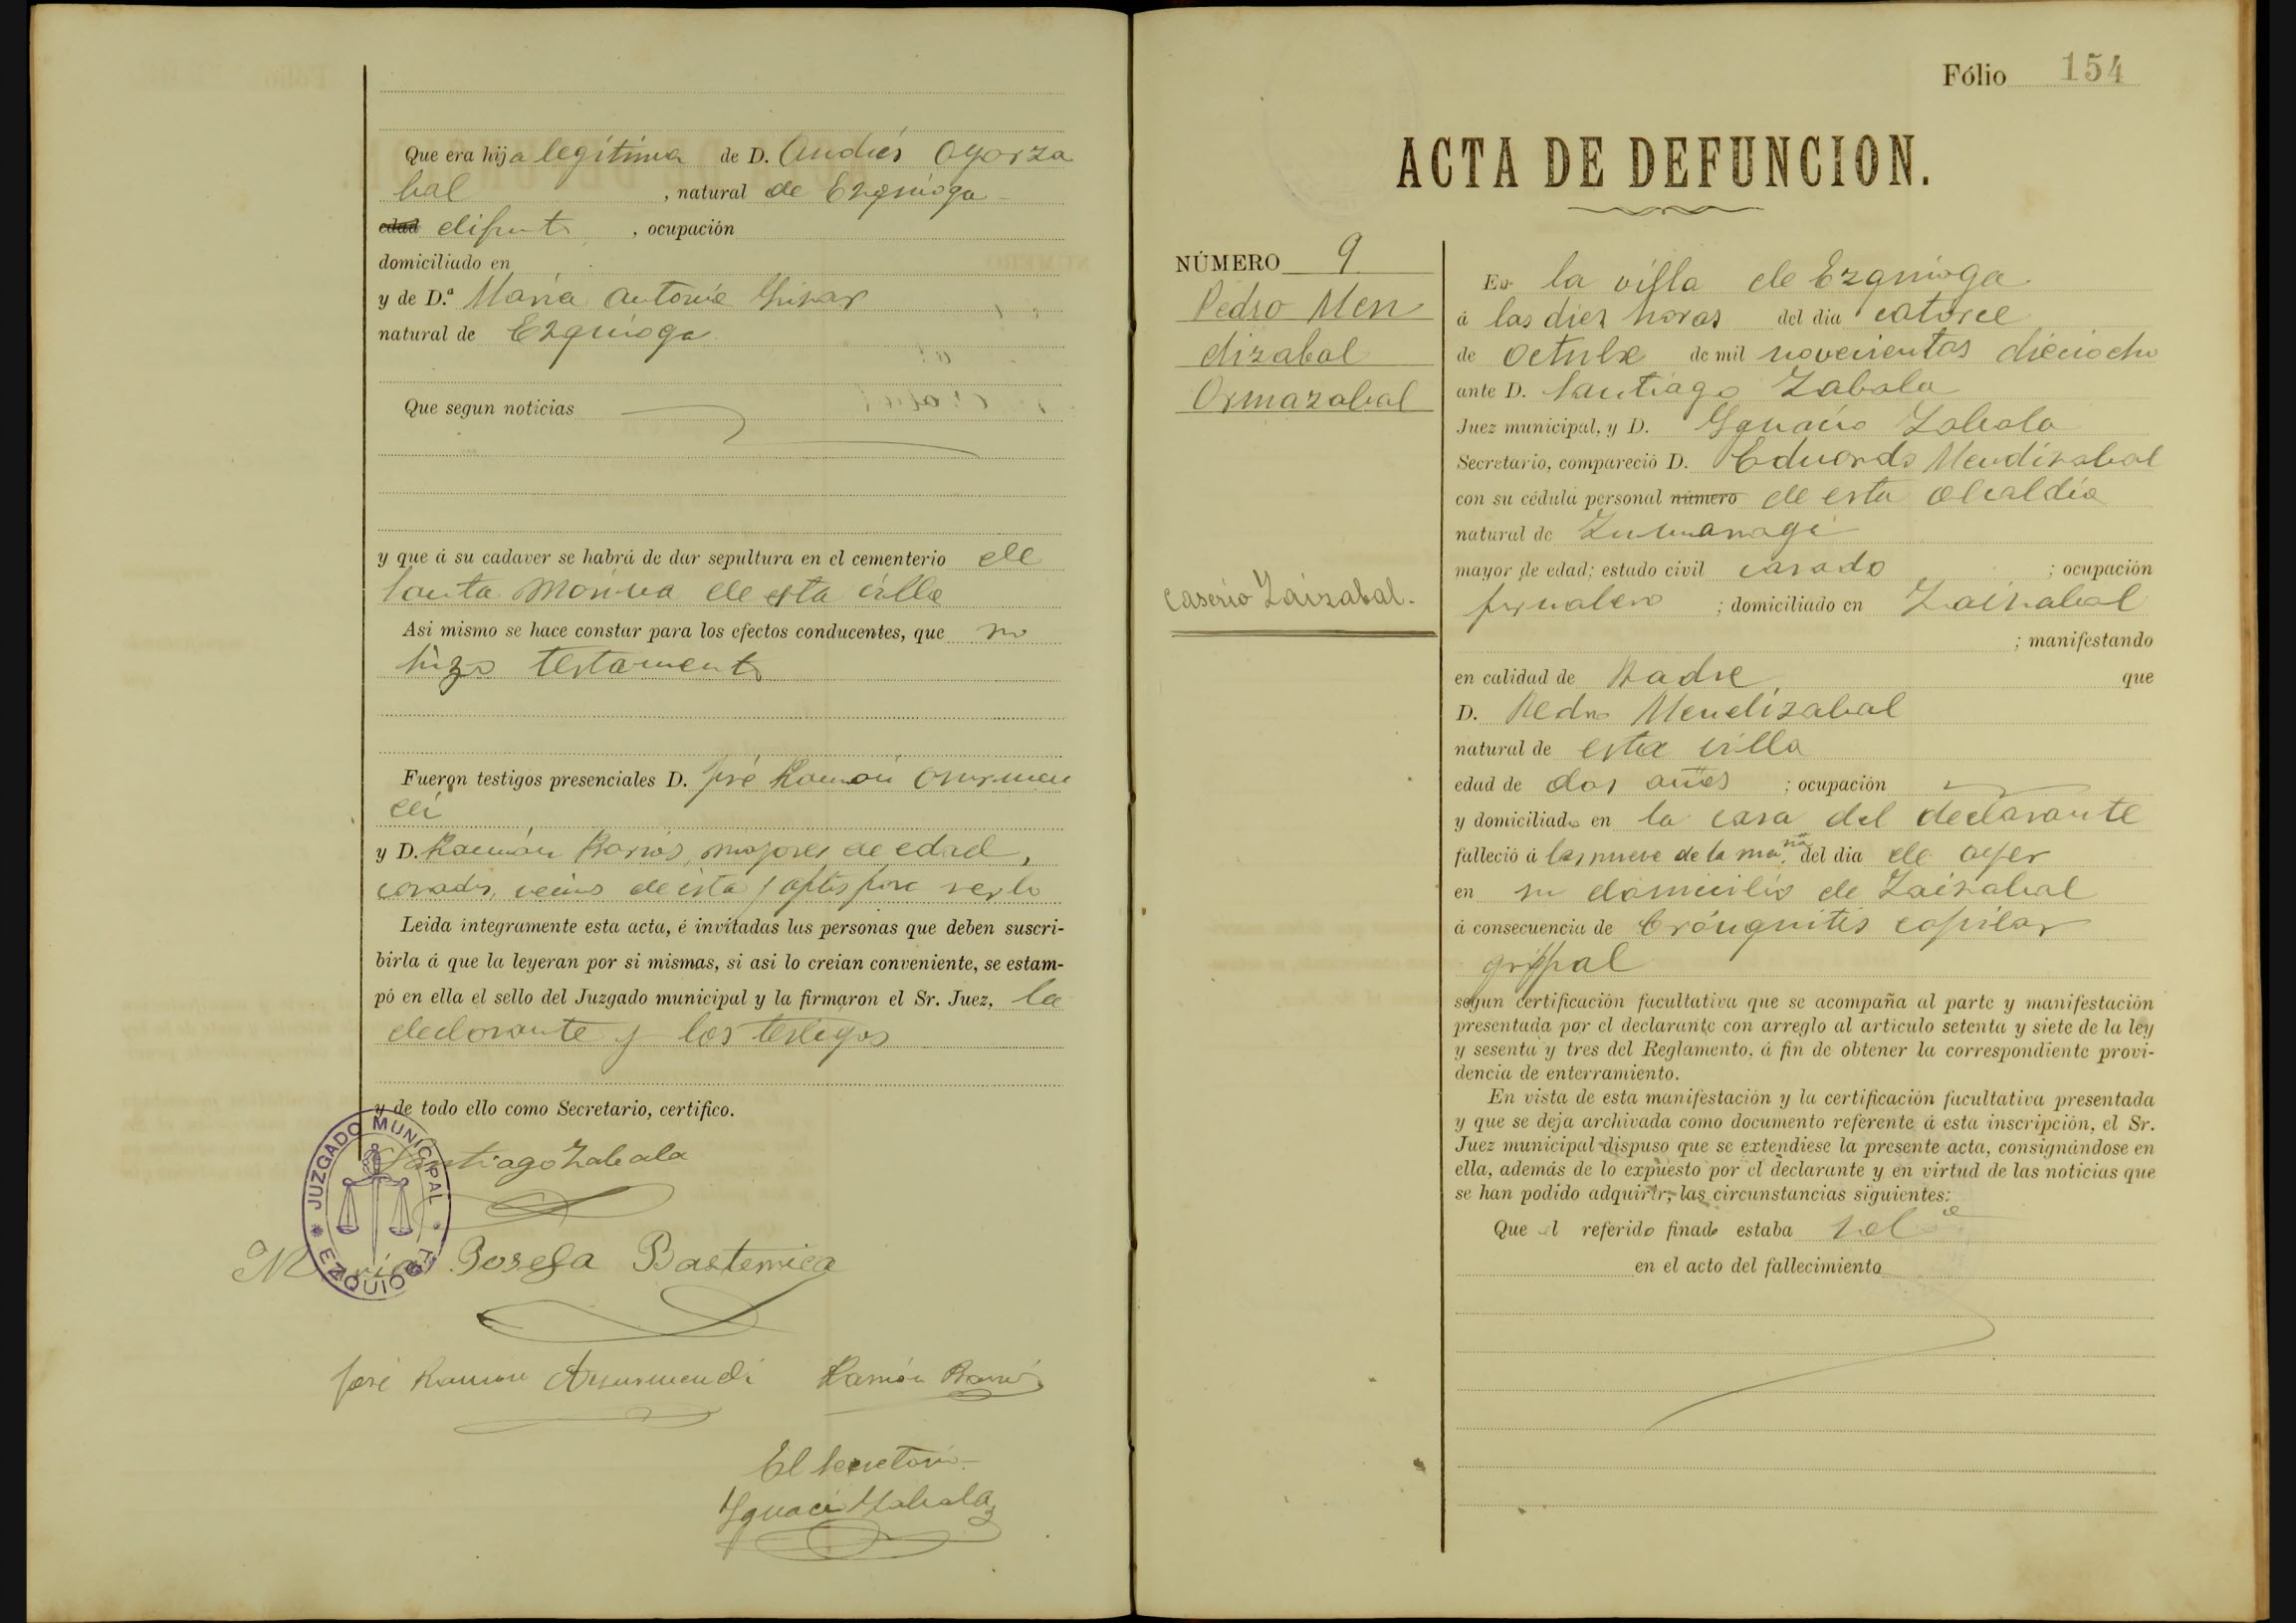 Que era hija legítima de D. Andrés Oyarza
bal , natural de Ezquioga
edad difunto , ocupación
domiciliado en
y de D.ª María Antonia
natural de Ezquioga
Que segun noticias
y que á su cadaver se habrá de dar sepultura en el cementerio de
Santa de esta villa
Asi mismo se hace constar para los efectos conducentes, que no
hizo testamento
Fueron testigos presenciales D. José Ramón
y D. Ramón Barrios, mayores de edad,
casados, vecinos de esta y aptos para serlo
Leida integramente esta acta, é invitadas las personas que deben suscri-
birla á que la leyeran por si mismas, si asi lo creian conveniente, se estam-
pó en ella el sello del Juzgado municipal y la firmaron el Sr. Juez, la
declarante y los testigos
y de todo ello como Secretario, certifico.
Santiago Zabala
JUZGADO MUNICIPAL
EZQUIOGA
María Josefa Basterrica
José Ramon Ramón
El Secretario
Ygnacio Zabala
Fólio 154
ACTA DE DEFUNCION.
NÚMERO 9
Pedro Men
dizabal
Ormazabal
Caserio Zaizabal.
En la villa de Ezquioga
á las diez horas del dia catorce
de Octubre de mil novecientos dieciocho
ante D. Santiago Zabala
Juez municipal, y D. Ygnacio Zabala
Secretario, compareció D. Eduardo Mendizabal
con su cédula personal número de esta alcaldía
natural de Zumarraga
mayor de edad; estado civil casado ; ocupación
jornalero ; domiciliado en Zaizabal
; manifestando
en calidad de Padre, que
D. Pedro Mendizabal
natural de esta villa
edad de dos años ; ocupación
y domiciliado en la casa del declarante
falleció á las nueve de la mañana del dia de ayer
en su domicilio de Zaizabal
á consecuencia de Brónquitis capilar
grippal
segun certificación facultativa que se acompaña al parte y manifestación
presentada por el declarante con arreglo al articulo setenta y siete de la ley
y sesenta y tres del Reglamento, á fin de obtener la correspondiente provi-
dencia de enterramiento.
En vista de esta manifestación y la certificación facultativa presentada
y que se deja archivada como documento referente á esta inscripción, el Sr.
Juez municipal dispuso que se extendiese la presente acta, consignándose en
ella, además de lo expuesto por el declarante y en virtud de las noticias que
se han podido adquirir, las circunstancias siguientes:
Que el referido finado estaba
en el acto del fallecimiento